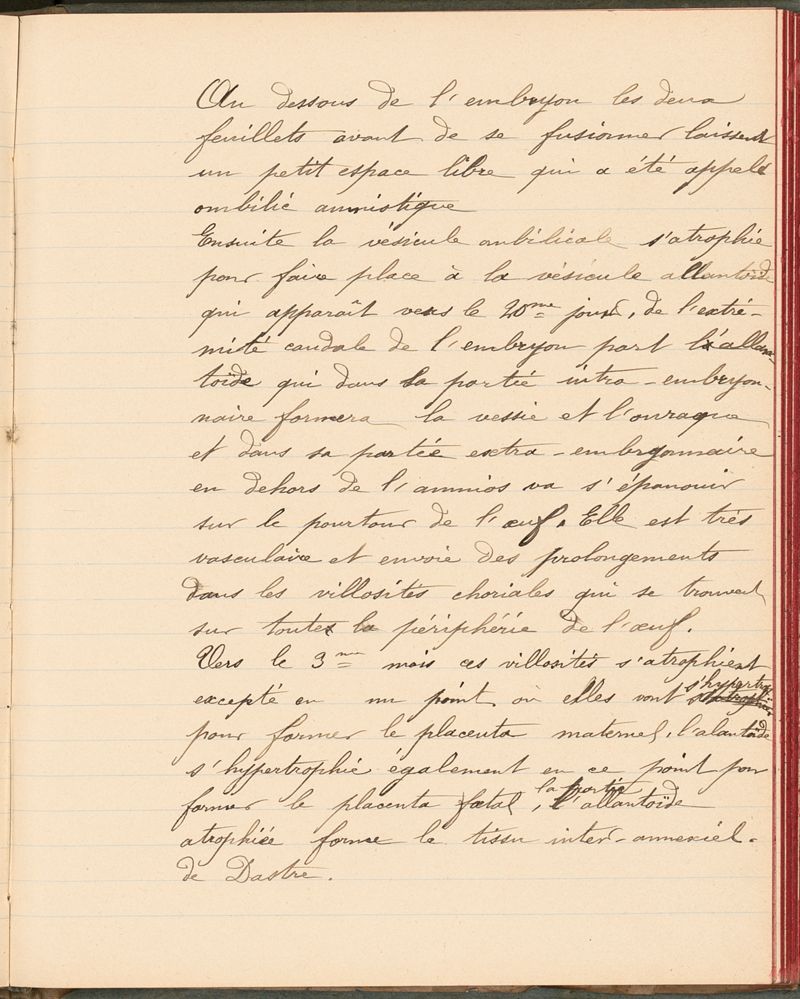 Au dessous de l'embryon les deux
feuillets avant de se fusionner laissent
un petit espace libre qui a été appelé
ombilic amniotique
Ensuite la vésicule ombilicale s'atrophie
pour faire place à la vésicule allantoïde
qui apparaît vers le 20me jour, de l'extré-
mité caudale de l'embryon part l'allan-
toïde qui dans la partie intra-embryon-
naire formera la vessie et l'ouraque
et dans sa partie extra-embryonnaire
en dehors de l'amnios va s'épanouir
sur le pourtour de l'œuf. Elle est très
vasculaire et envoie des prolongements
dans les villosités choriales qui se trouvent
sur toute la périphérie de l'œuf.
Vers le 3me mois ces villosités s'atrophient
excepté en un point où elles vont s'hypertro
pour former le placenta maternel, l'alantoïde
s'hypertrophie également en ce point pour
former le placenta fœtal, la partie l'allantoïde
atrophiée forme le tissu inter-annexiel.
de Dastre.